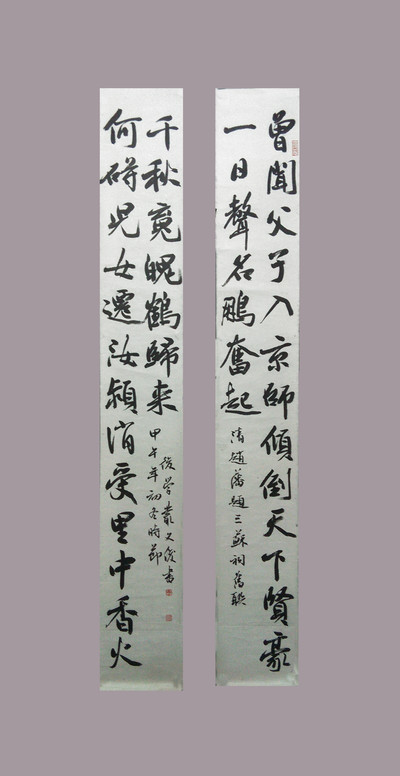 曾聞父子入京師傾倒天下賢豪
一日聲名鵬奮起
清趙藩題三蘇祠舊聯
何碍児女遷汝潁消受里中香火
千秋魂魄鶴歸来
甲午年初冬時節
後學書